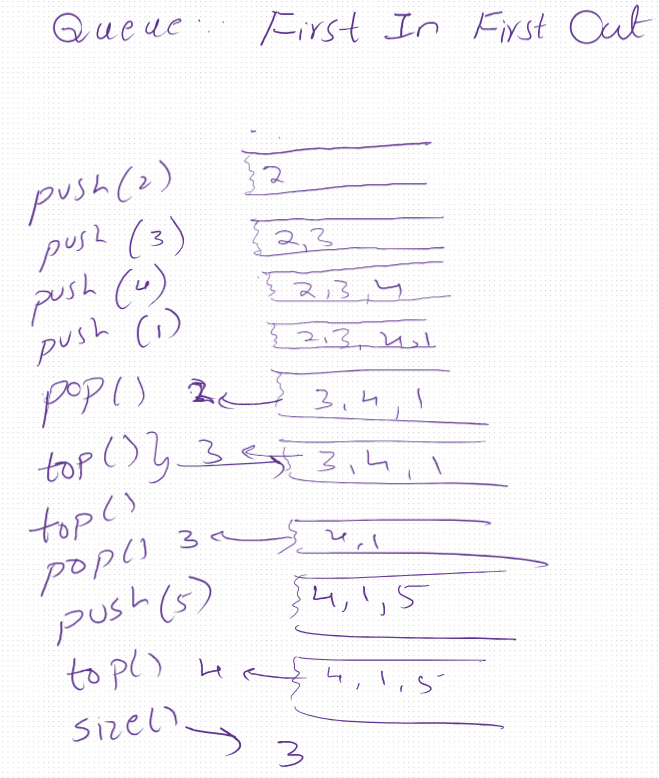 Queue: First In First Out
push(2) 2
push (3) 2,3
push (4) 2,3,4
push (1) 2,3,4,1
pop() 2 ← 3,4,1
top() } 3 3,4,1
top()
pop() 3 ← 4,1
push(5) 4,1,5
top() 4 ← 4,1,5
size() → 3